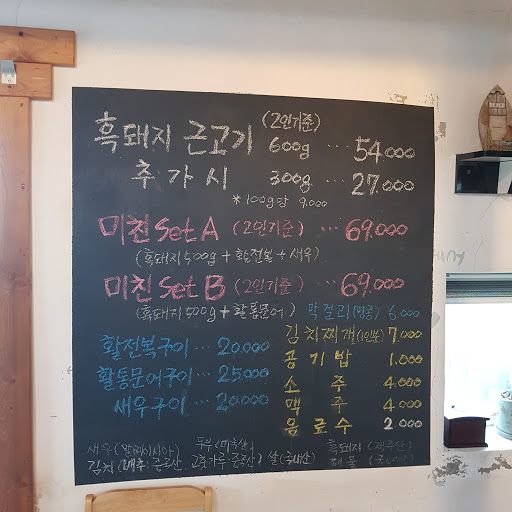 흑돼지 근고기 (2인기준) 600g ... 54.000
추가시 300g ... 27.000
* 100g당 9.000
미친 Set A (2인기준) ... 69.000
(흑돼지 500g + 활전복 + 새우)
미친 Set B (2인기준) ... 69.000
(흑돼지 500g + 활통문어)
막걸리 6.000
김치찌개 (1인분) 7.000
활전복구이 ... 20.000
공기밥 1.000
활통문어구이 ... 25.000
소주 4.000
새우구이 ... 20.000
맥주 4.000
음료수 2.000
새우(말레이시아) 두부(미국산) 흑돼지(제주산)
김치(배추:중국산, 고춧가루:중국산) 쌀(국내산) 해물